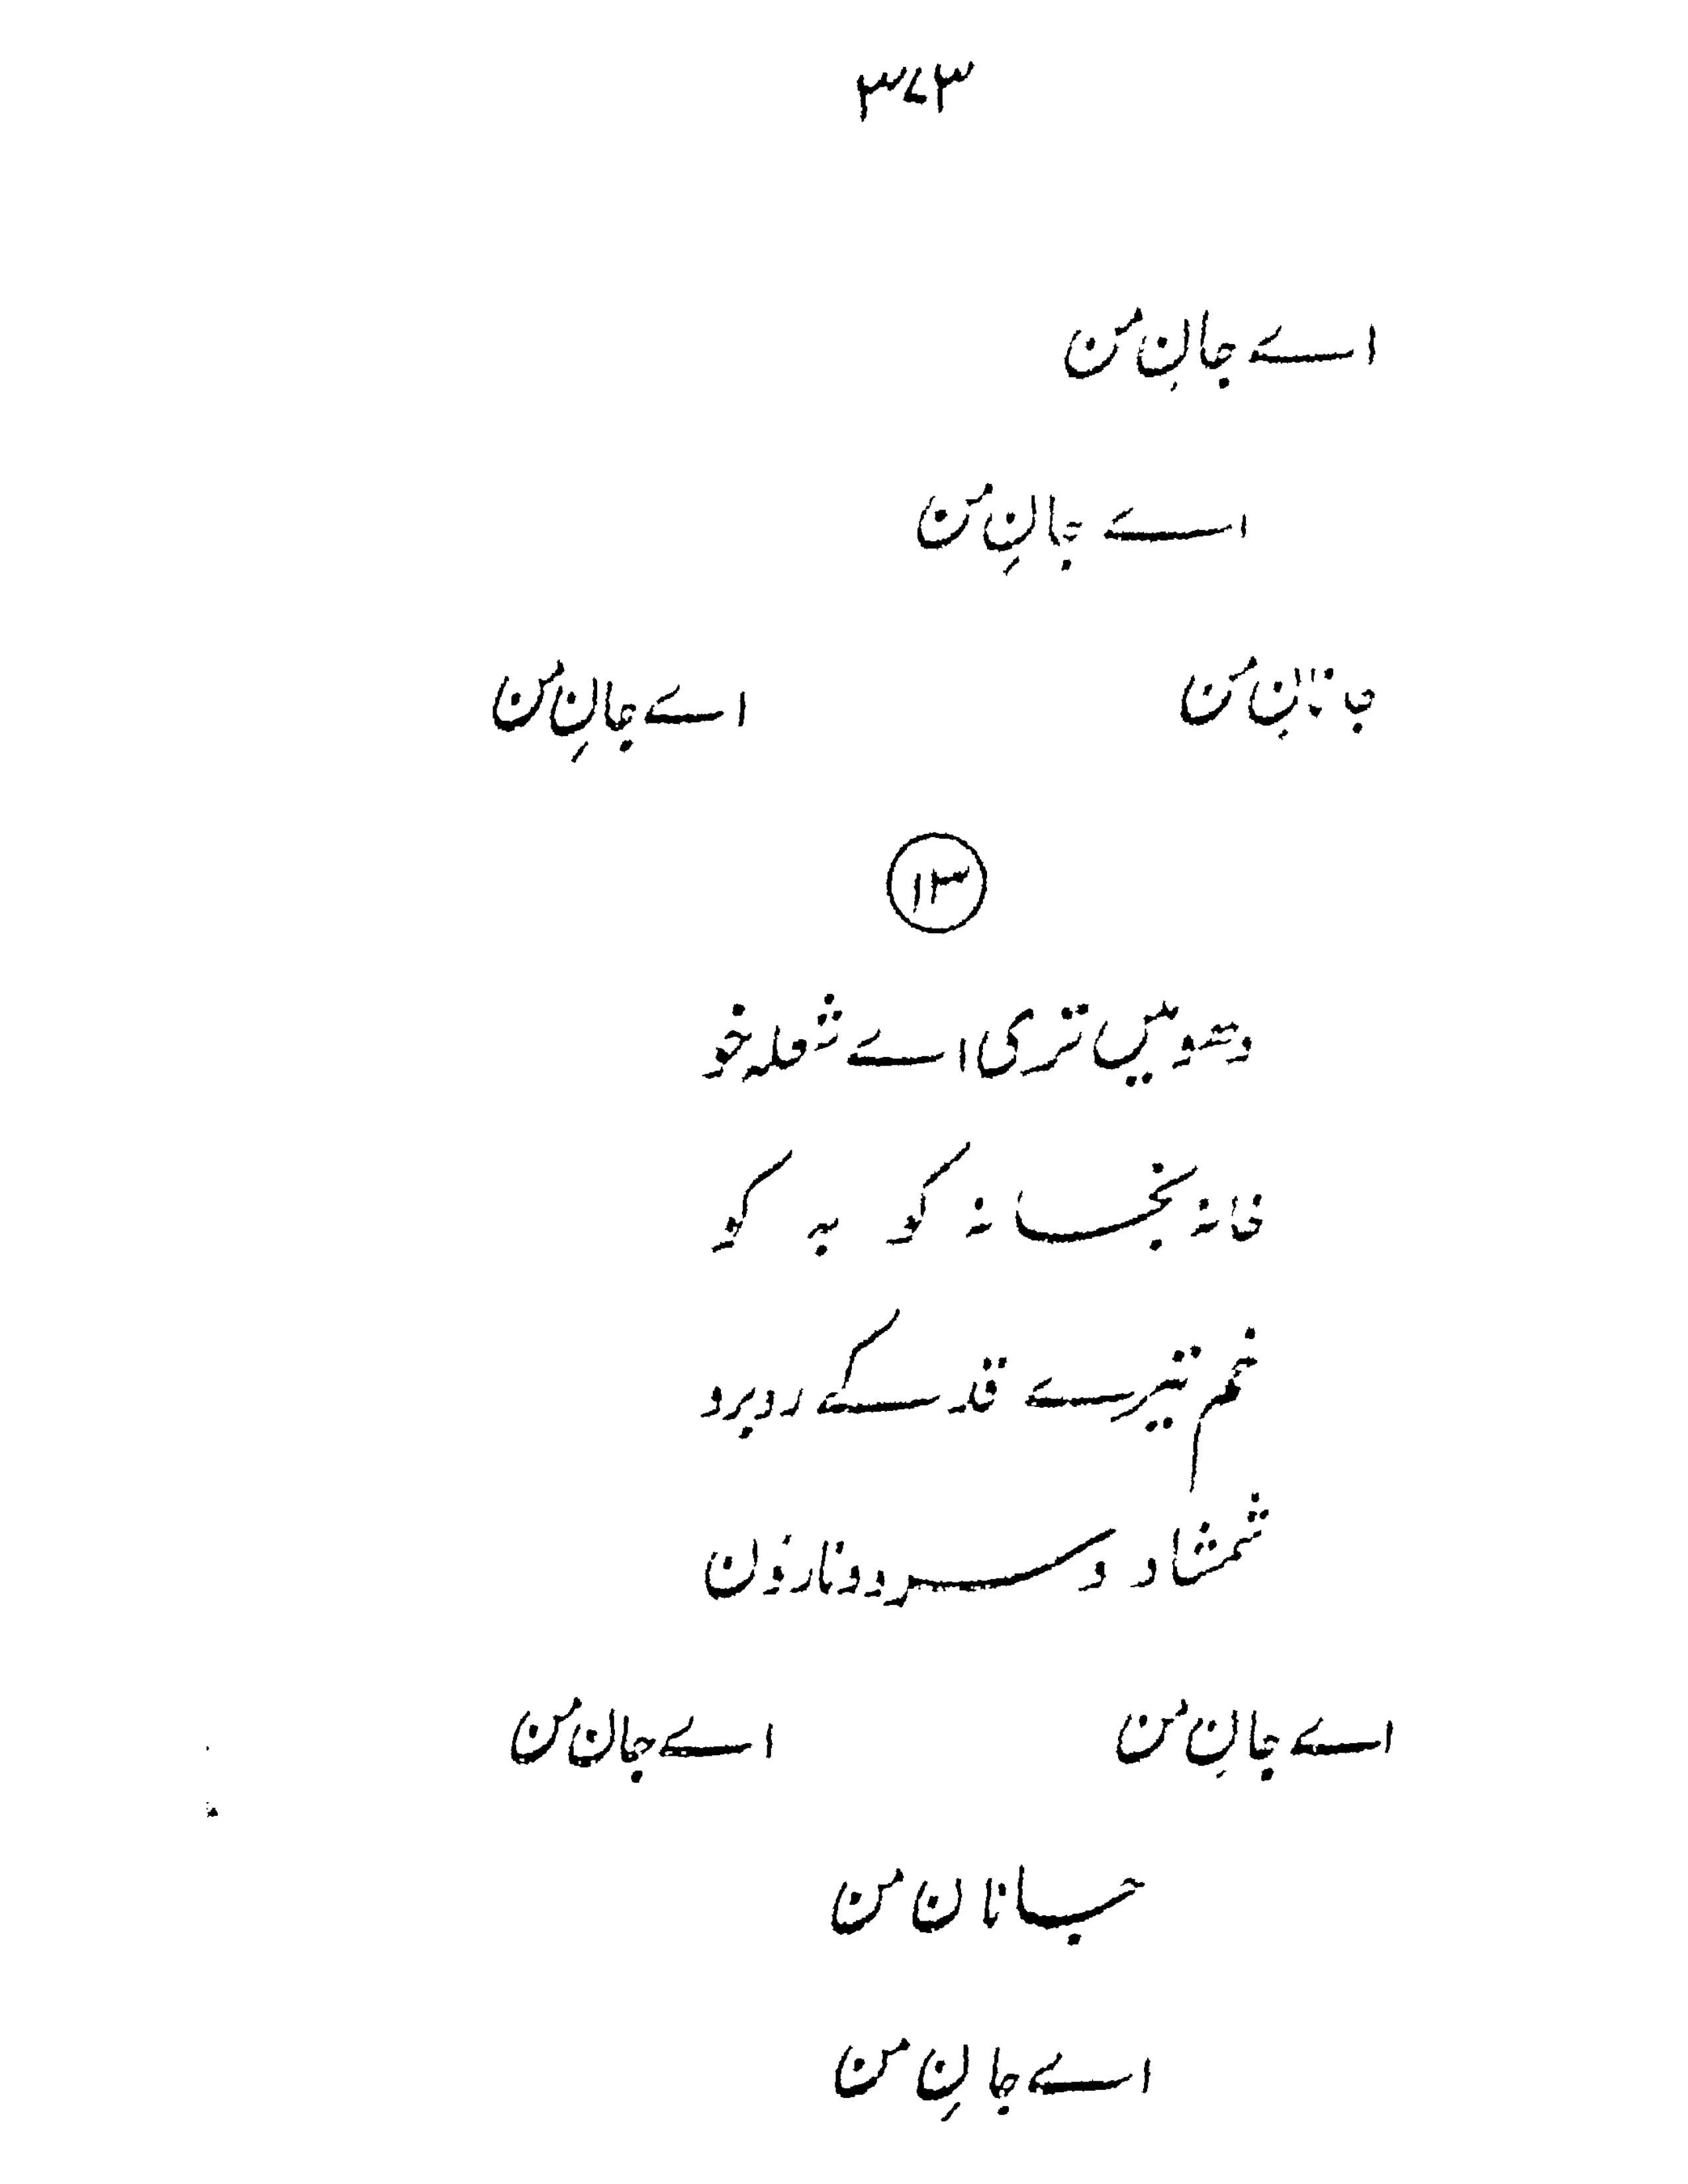 ۳۷۳
اے جانِ من
اے جانِ من
جانانِ من اے جانِ من
۱۳
دھومیں تری اے شعلہ خو
خانہ بخانہ کو بہ کو
خم تیرے قد کے روبرو
شمشاد و سرو و نارون
اے جانِ من اے جان من
جانان من
اے جانِ من